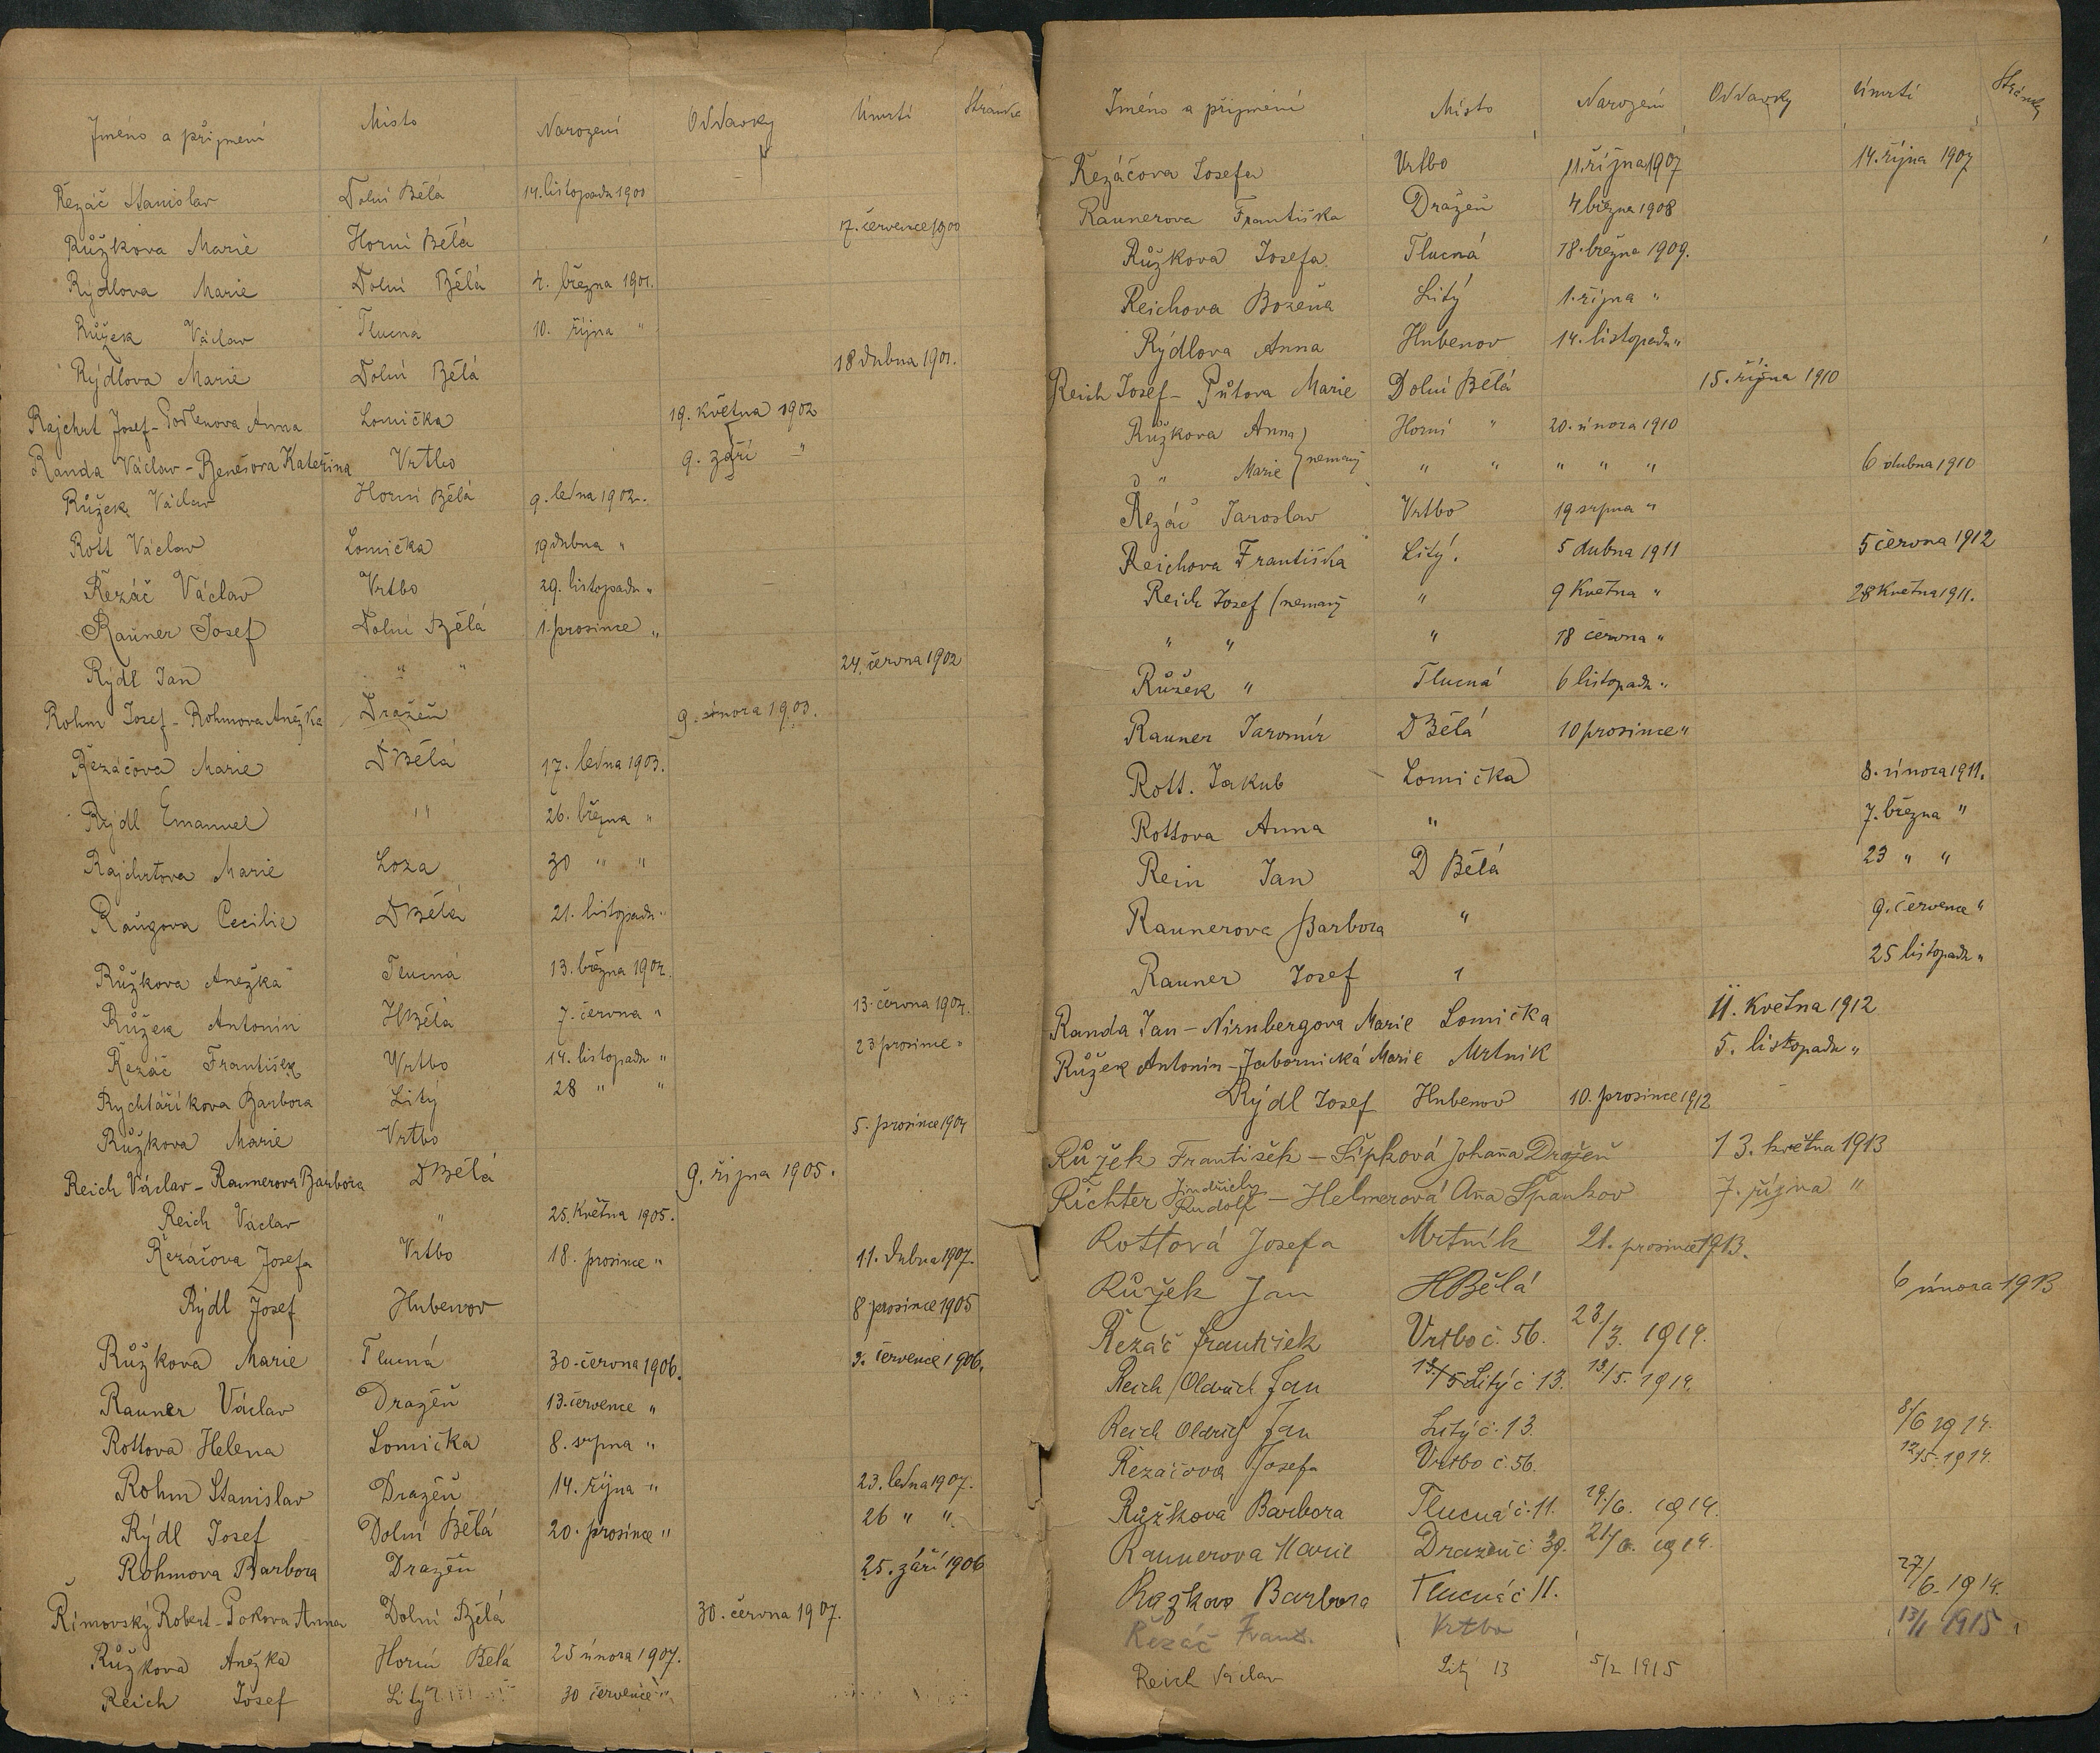 Jméno a příjmení Místo Narození Oddavky Úmrtí Stránka
Řezáč Stanislav Dolní Bělá 14. listopadu 1900
Růžkova Marie Horní Bělá 17. července 1900
Rýdlova Marie Dolní Bělá 4. března 1901.
Růžek Václav Tlucná 10. října "
Rýdlova Marie Dolní Bělá 18 dubna 1901.
Rajchrt Josef - Anna Lomička 19. května 1902
Randa Václav - Benešova Kateřina Vrtbo 9. září "
Růžek Václav Horní Bělá 9. ledna 1902.
Rott Václav Lomička 19 dubna "
Řezáč Václav Vrtbo 29. listopadu "
Rauner Josef Dolní Bělá 1. prosince "
Rýdl Jan " " 24. června 1902
Rohm Josef - Rohmova Anežka Dražeň 9. února 1903.
Řezáčova Marie D Bělá 17. ledna 1903.
Rýdl Emanuel " 26. března "
Rajchrtova Marie Loza 30 " "
Raugova Cecilie D Bělá 21. listopadu "
Růžkova Anežka Tlucná 13. března 1904.
Růžek Antonín H Bělá 7. června " 13. června 1904.
Řezáč František Vrtbo 14. listopadu " 23 prosince "
Rychtaříkova Barbora Litý 28 " "
Růžkova Marie Vrtbo 5. prosince 1904
Reich Václav - Raunerova Barbora D Bělá 9. října 1905.
Reich Václav " 25. května 1905.
Řezáčova Josefa Vrtbo 18. prosince " 11. dubna 1907.
Rýdl Josef Hubenov 8 prosince 1905
Růžkova Marie Tlucná 30. června 1906. 3. července 1906.
Rauner Václav Dražeň 13. července "
Rottova Helena Lomička 8. srpna "
Rohm Stanislav Dražeň 14. října " 23. ledna 1907.
Rýdl Josef Dolní Bělá 20. prosince " 26 " "
Rohmova Barbora Dražeň 25. září 1906
Římovský Robert - Pokova Anna Dolní Bělá 30. června 1907.
Růžkova Anežka Horní Bělá 25 února 1907.
Reich Josef Litý 30 července "
Jméno a příjmení Místo Narození Oddavky Úmrtí Stránky
Řezáčova Josefa Vrtbo 11. října 1907 14. října 1907
Raunerova Františka Dražeň 4 března 1908
Růžkova Josefa Tlucná 18. března 1909.
Reichova Božena Litý 1. října "
Rýdlova Anna Hubenov 14. listopadu "
Reich Josef - Půtova Marie Dolní Bělá 15. října 1910
Růžkova Anna Horní " 20. února 1910
" Marie nemanž " " " " " 6 dubna 1910
Řezáč Jaroslav Vrtbo 19 srpna "
Reichova Františka Litý. 5 dubna 1911 5 června 1912
Reich Josef (nemanž " 9 května " 28 května 1911.
" " " 18 června "
Růžek " Tlucná 6 listopadu "
Rauner Jaromír D Bělá 10 prosince "
Rott. Jakub Lomička 8. února 1911.
Rottova Anna " 7. března "
Rein Jan D Bělá 23 " "
Raunerova Barbora " 9. července "
Rauner Josef " 25 listopadu "
Randa Jan - Nirnbergova Marie Lomička 11. května 1912
Růžek Antonín - Jabornická Marie Mrtnik 5. listopadu "
Rýdl Josef Hubenov 10. prosince 1912
Růžek František - Šípková Johana Dražeň 13. května 1913
Richter Jindřich Rudolf - Helmerová Aña Špankov 7. října "
Rottová Josefa Mrtník 21. prosince 1913.
Růžek Jan H Bělá 6 února 1913
Řezáč František Vrtbo č. 56. 23./3. 1914.
Reich Oldřich Jan 13./5 Litý č 13. 13/5. 1914.
Reich Oldřich Jan Litý č. 13. 8/6 1914.
Řezáčova Josefa Vrtbo č. 56. 12/5. 1914.
Růžková Barbora Tlucná č. 11. 19./6. 1914.
Raunerova Marie Dražeň č. 39. 21/6. 1914.
Růžkova Barbora Tlucná č 11. 27/6. 1914.
Řezáč Frant. Vrtbo 13/1 1915
Reich Václav Litý 13 5/2 1915